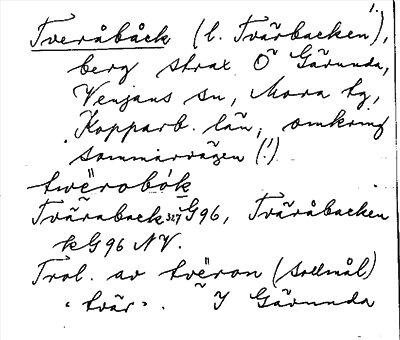 1.
Tveråbåck (l. Tvärbacken),
berg strax Ö Gävunda,
Venjans sn, Mora tg,
Kopparb. län, omkring
sommarvägen (!)
twërobók
Tväraback 327 G96, Tväråbacken
kG96 NV.
Trol. av tvëron (sollmål.)
"tvär". ~ I Gävunda